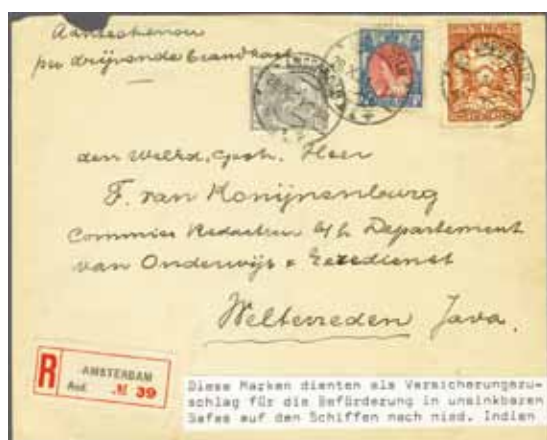 Aantekenen
per drijvende brandkast
AMSTERDAM
den Weled. Gestr. Heer
F. van Konijnenburg
Commies Redacteur b/h Departement
van Onderwijs & Eeredienst
Weltevreden Java.
R
AMSTERDAM
Aad. № 39
Diese Marken dienten als Versicherungszu-
schlag für die Beförderung in unsinkbaren
Safes auf den Schiffen nach nied. Indien